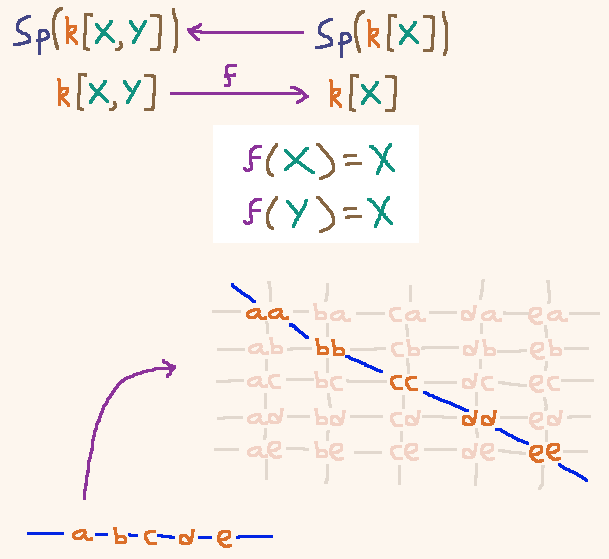 Sp(k[X,Y]) ← Sp(k[X])
f
k[X,Y] → k[X]
f(X)=X
f(Y)=X
aa ba ca da ea
ab bb cb db eb
ac bc cc dc ec
ad bd cd dd ed
ae be ce de ee
a b c d e